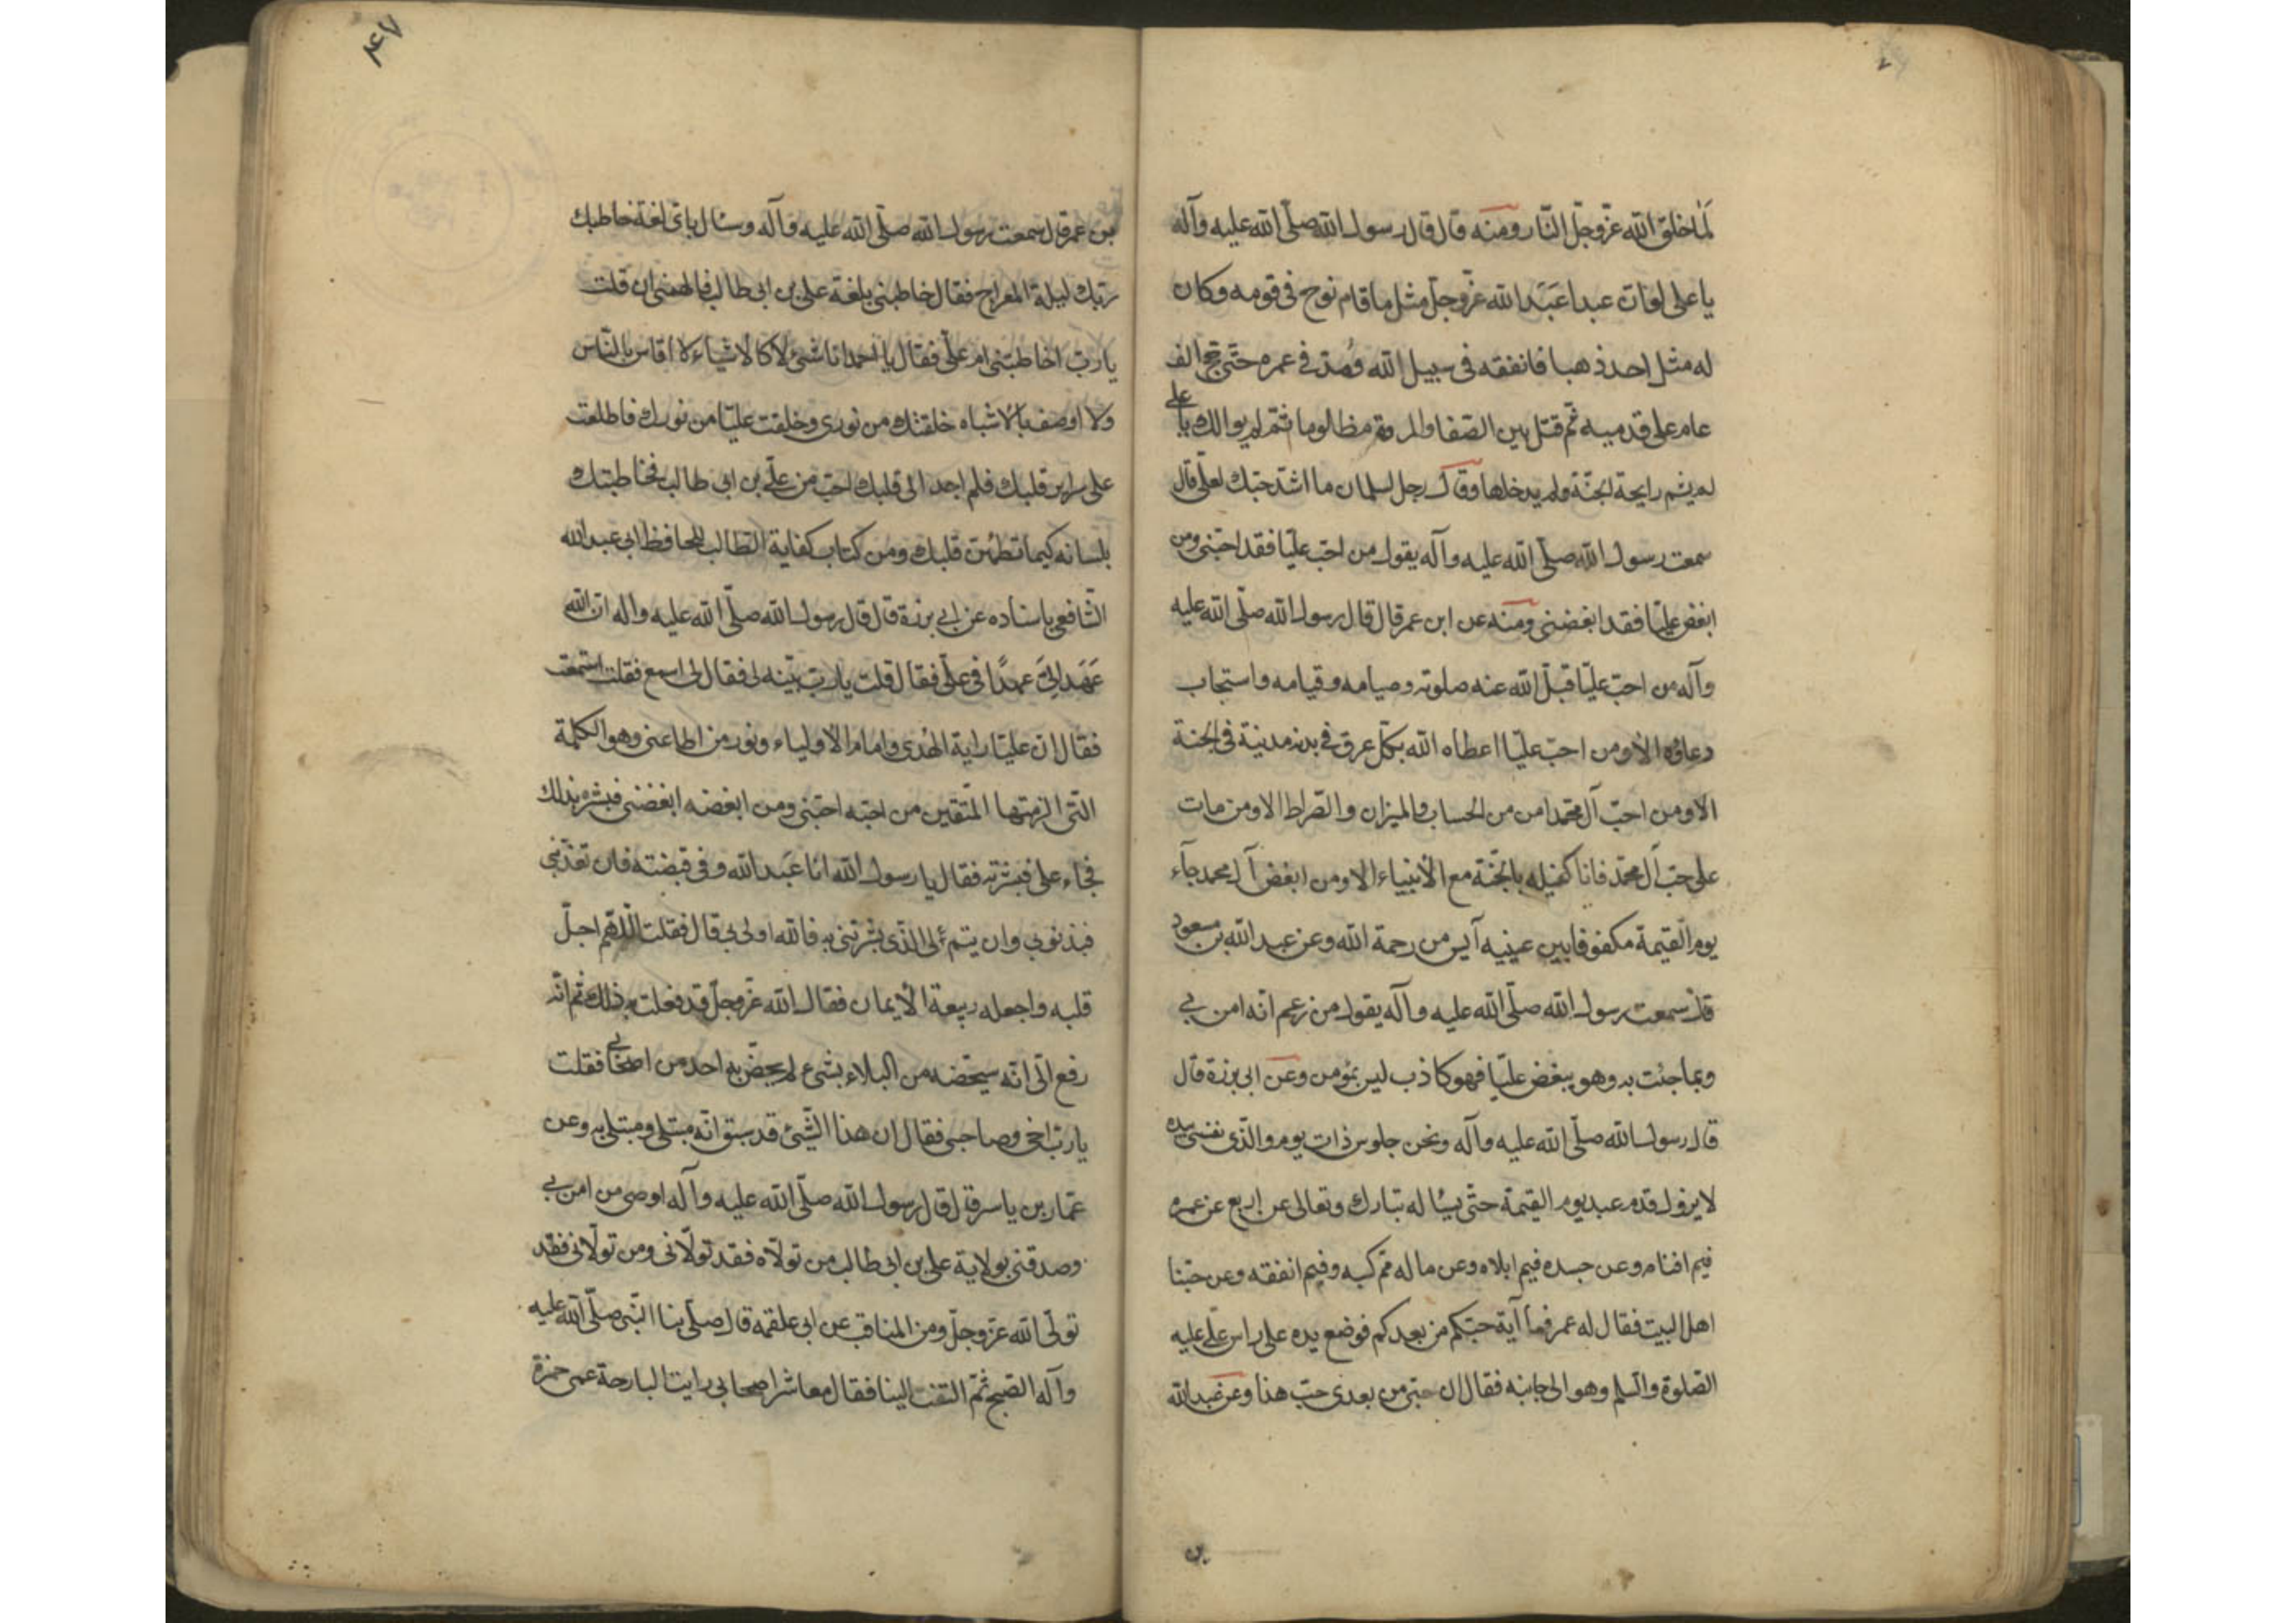 لما خلق الله عزّ وجلّ النّار ومنه قال قال رسول الله صلّى الله عليه وآله
يا على لو ان عبدا عَبَدَ الله عزّ وجلّ مثل ما قام نوح فى قومه وكان
له مثل احد ذهبا فانفقه فى سبيل الله ومُدّ فى عمره حتّى حج الف
عام على قدميه ثم قتل بين الصّفا والمروة مظلوما ثم لم يوالك يا على
لم يشم رايحة الجنّة ولم يدخلها وقال رجل لسلمان ما اشدّ حبّك لعلى قال
سمعت رسول الله صلّى الله عليه وآله يقول من احبّ عليّا فقد احبّنى ومن
ابغض عليّا فقد ابغضنى ومنه عن ابن عمر قال قال رسول الله صلّى الله عليه
وآله من احبّ عليّا قبل الله عنه صلوته وصيامه وقيامه واستجاب
دعاؤه الا ومن احبّ عليّا اعطاه الله بكلّ عرق فى بدنه مدينة فى الجنة
الا ومن احبّ آل محمّد امن من الحساب والميزان والصّراط الا ومن مات
على حبّ آل محمّد فانا كفيله بالجنّة مع الأنبياء الا ومن ابغض آل محمد جآء
يوم القيمة مكفوفا بين عينيه آيس من رحمة الله وعن عبد الله بن مسعود
قال سمعت رسول الله صلّى الله عليه وآله يقول من زعم انّه امن بى
وبما جئت به وهو يبغض عليّا فهو كاذب ليس بمؤمن وعن ابى برزة قال
قال رسول الله صلّى الله عليه وآله ونحن جلوس ذات يوم والّذى نفسى بيده
لا يزول قدم عبد يوم القيمة حتّى يسئله تبارك وتعالى عن اربع عن عمره
فيم افناه وعن جسده فيم ابلاه وعن ماله ممّ كسبه وفيم انفقه وعن حبّنا
اهل البيت فقال له عمر فما آية حبّكم من بعدكم فوضع يده على راس علّى عليه
الصّلوة والسّلم وهو الى جانبه فقال ان حبّى من بعدى حبّ هذا وعن عبد الله
بن
بن عمر قال سمعت رسول الله صلّى الله عليه وآله وسئل باى لغة خاطبك
ربّك ليلة المعراج فقال خاطبنى بلغة على بن ابى طالب فالهمنى ان قلت
يا ربّ اخاطبتنى ام علّى فقال يا احمد انا شئ لا كالاشياء لا اقاس بالنّاس
ولا اوصف بالاشباه خلقتك من نورى وخلقت عليّا من نورك فاطلعت
على سراير قلبك فلم اجد الى قلبك احبّ من علّى بن ابى طالب فخاطبتك
بلسانه كيما تطمئن قلبك ومن كتاب كفاية الطالب للحافظ ابى عبد الله
الشّافعى باسناده عن ابى برزة قال قال رسول الله صلّى الله عليه واله ان الله
عَهَد الىَّ عهدًا فى علّى فقال قلت يا ربّ بيّنه لى فقال لى اسمع فقلت استمعت
فقال ان عليّا راية الهُدى وامام الاولياء ونور من اطاعنى وهو الكلمة
الّتى الزمتها المتّقين من احبّه احبّنى ومن ابغضه ابغضنى فبشره بذلك
فجاء على فبشرته فقال يا رسول الله انا عَبد الله وفى قبضته فان تعذّبنى
فبذنوبى وان يتم لى الّذى بشرتنى به فالله اولى بى قال فقلت اللّهم اجلّ
قلبه واجعله ربيعة الأيمان فقال الله عزّ وجلّ قد فعلت به ذلك ثم انّه
رفع الّى انّه سيخصّه من البلاء بشئ لم يخصّ به احد من اصحابى فقلت
يا ربّ اخى وصاحبى فقال ان هذا الشّئ قد سبق انّه مبتلى ومبتلى به وعن
عمّار بن ياسر قال قال رسول الله صلّى الله عليه وآله اوصى من امن بى
وصدقنى بولاية على بن ابى طالب من تولّاه فقد تولّانى ومن تولّانى فقد
تولّى الله عزّ وجلّ ومن المناقب عن ابى علقمه قال صلّى بنا النّبى صلّى الله عليه
وآله الصّبح ثمّ التفت الينا فقال معاشر اصحابى رايت البارحة عمى حمزة